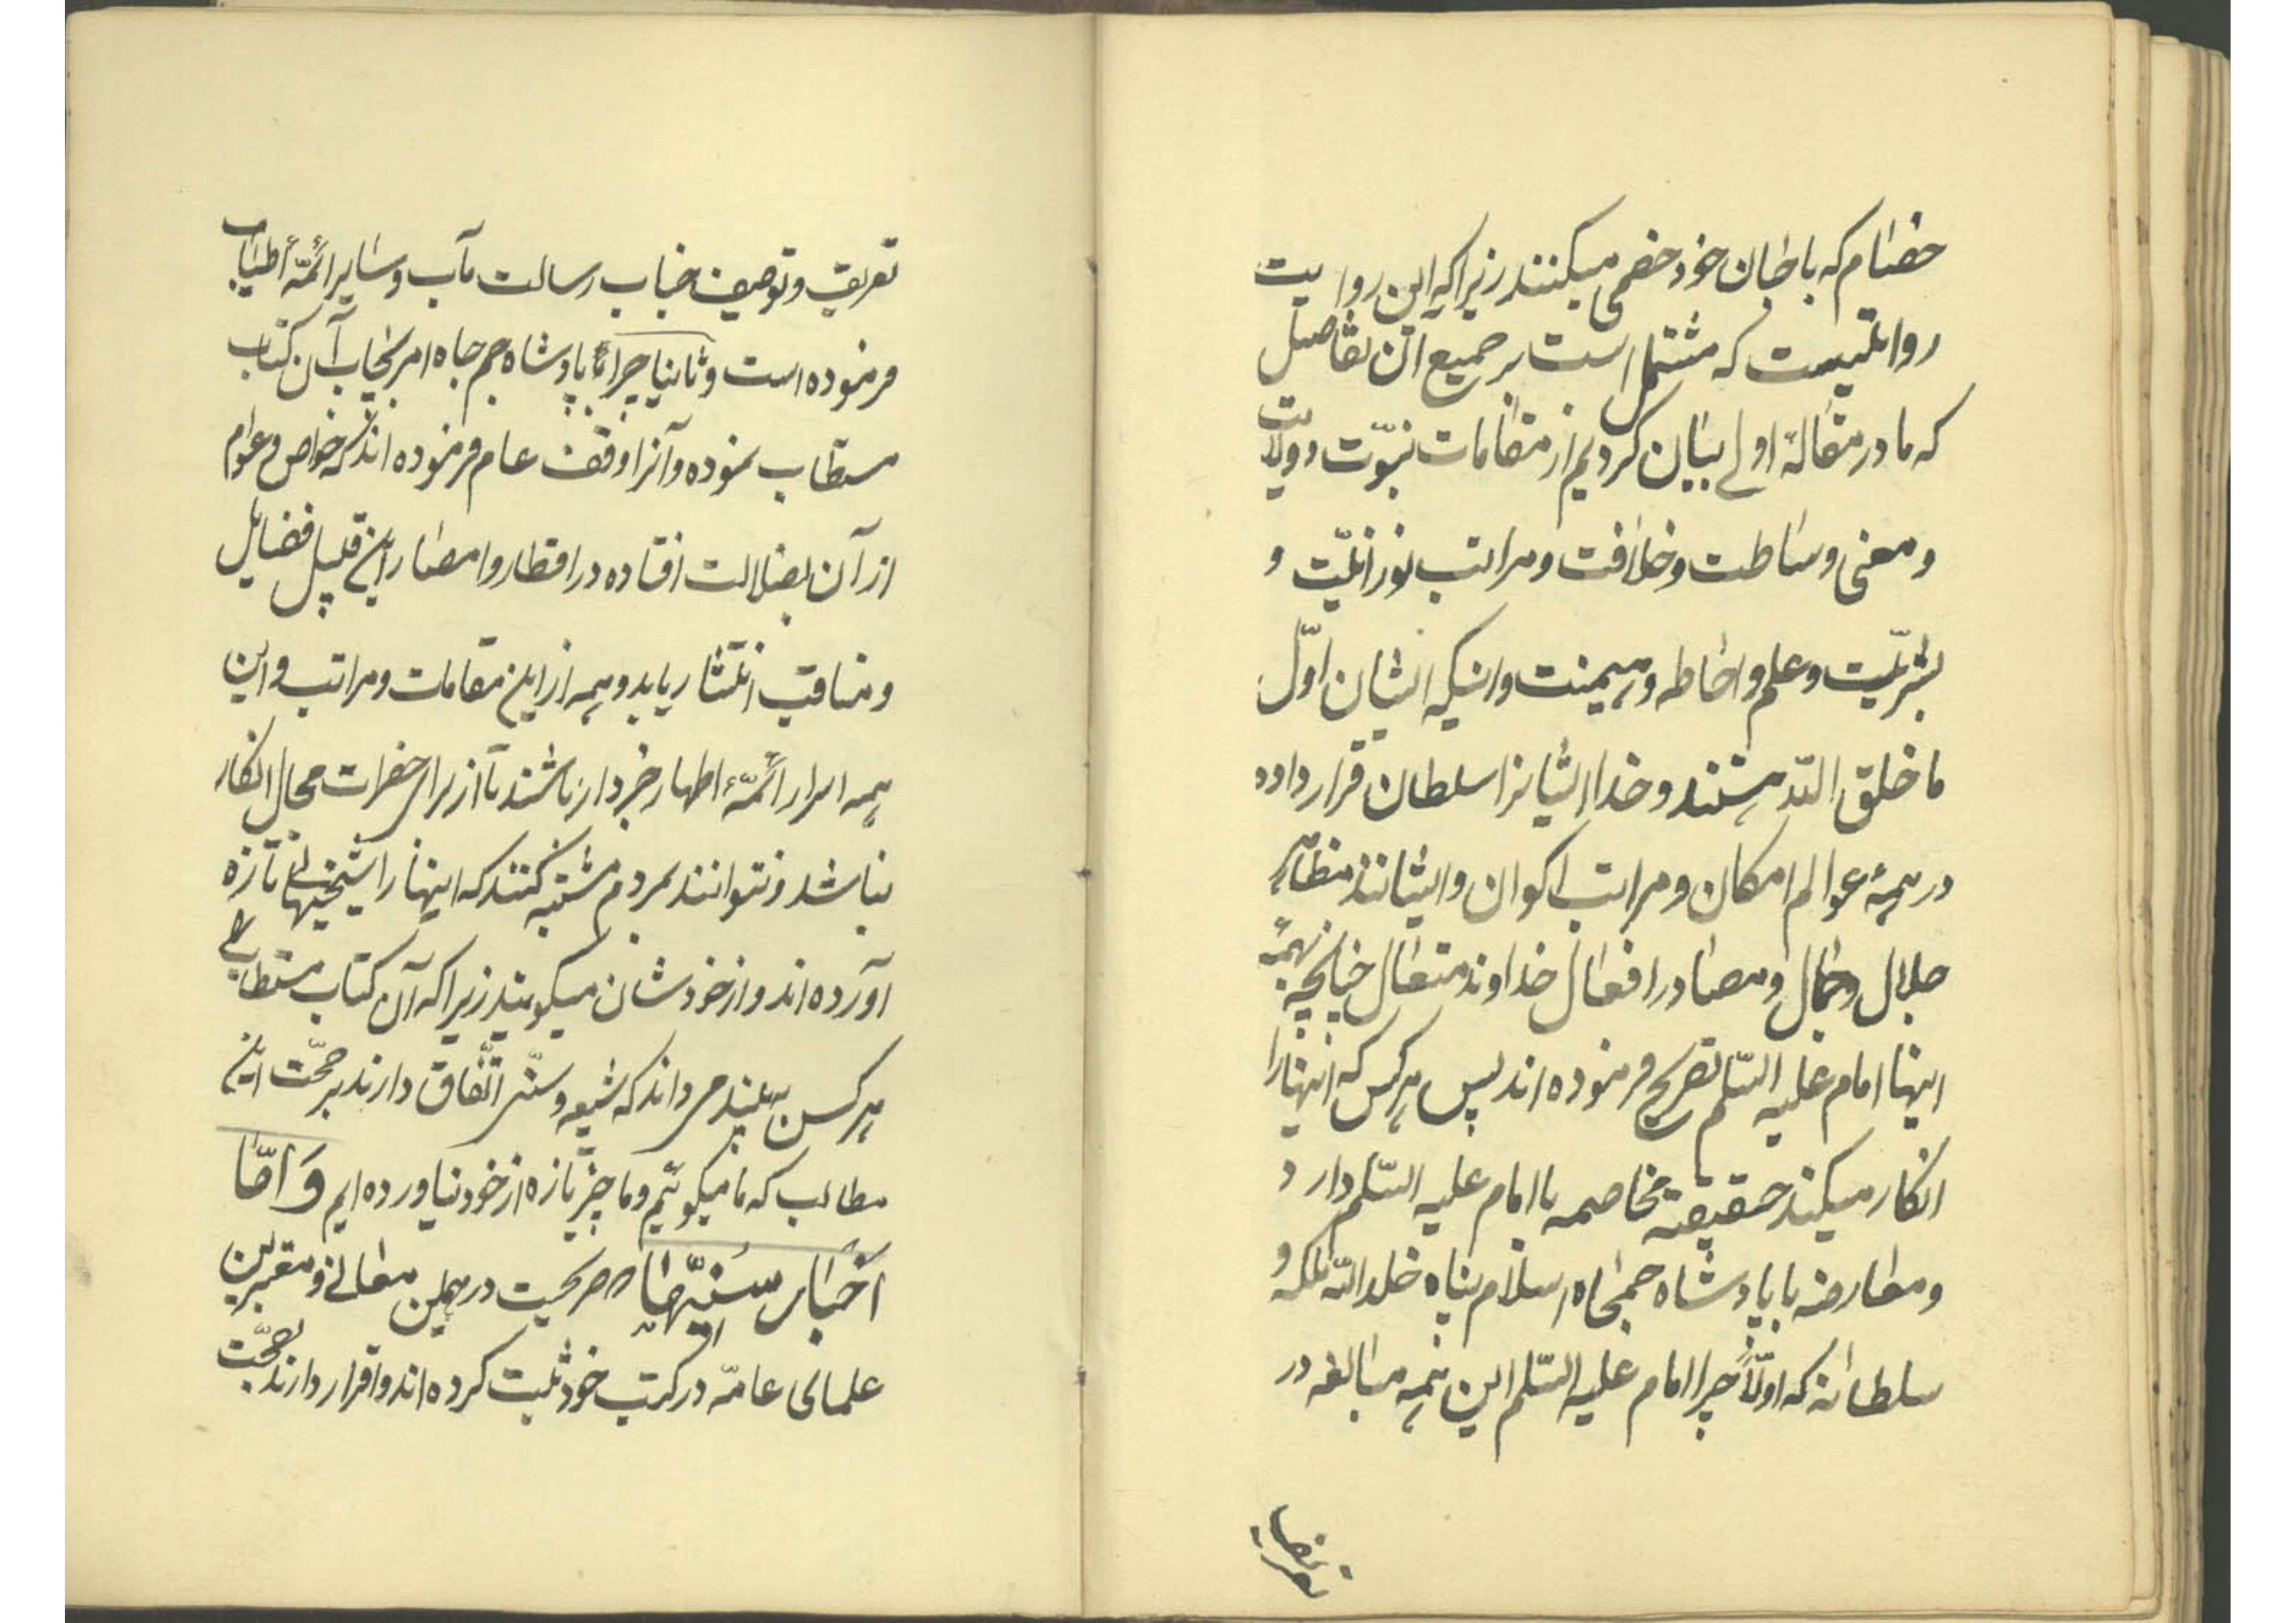 خصام که با جان خود خصمی میکنند زیرا که این روایت
روایتیست که مشتمل است بر جمیع آن تفاصیل
که ما در مقالهٔ اولی بیان کردیم از مقامات نبوّت و ولایت
و معنی وساطت و خلافت و مراتب نورانیّت و
بشریّت و علم و احاطه و هیمنت و اینکه ایشان اوّل
ما خلق اللّه هستند و خدا ایشانرا سلطان قرار داده
در همهٔ عوالم امکان و مراتب اکوان و ایشانند مظاهر
جلال و جمال و مصادر افعال خداوند متعال چنانچه بهمهٔ
اینها امام علیه السّلم تصریح فرموده اند پس هرکس که اینها را
انکار میکند حقیقة مخاصمه با امام علیه السّلم دارد
و معارضه با پادشاه جمجاه اسلام پناه خلد اللّه ملکه و
سلطانه که اولاً چرا امام علیه السّلم این همه مبالغه در
تعریف
تعریف و توصیف جناب رسالت مآب و سایر ائمّهٔ اطیاب
فرموده است و ثانیا چرا پادشاه جم جاه امر بچاپ آن کتاب
مستطاب نموده و آنرا وقف عام فرموده اند که خواص و عوام
از آن بضلالت افتاده در اقطار و امصار این قبیل فضایل
و مناقب انتشار یابد و همه از این مقامات و مراتب و این
همه اسرار ائمّهٔ اطهار خبردار باشند تا از برای حضرات مجال انکار
نباشد و نتوانند بمردم مشتبه کنند که اینها را شیخیها تازه
آورده اند و از خودشان میگویند زیرا که آن کتاب مستطاب را
هر کس به بیند می داند که شیعه و سنّی اتّفاق دارند بر صحّت این
مطالب که ما میگوئیم و ما چیز تازه از خود نیاورده ایم وَ امّا
اَخبار سُنیّها که صریحست در همین معانی و معتبرین
علمای عامّه در کتب خود ثبت کرده اند و اقرار دارند بصحّت